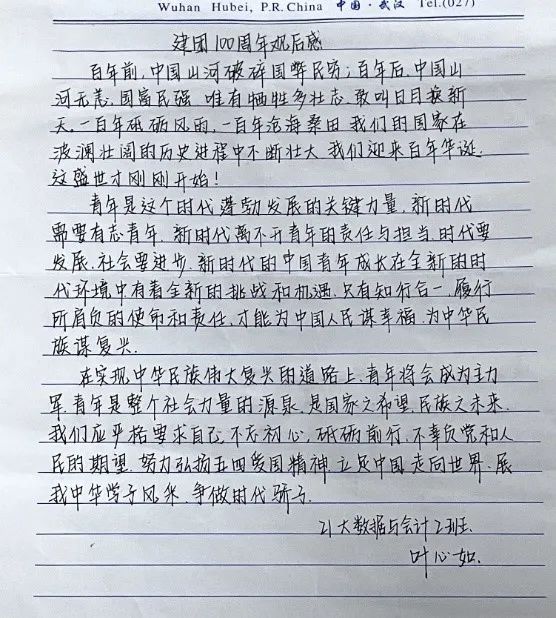 Wuhan Hubei, P.R. China 中国·武汉 Tel.(027)
建团100周年观后感
百年前,中国山河破碎国弊民穷;百年后,中国山
河无恙,国富民强.唯有牺牲多壮志,敢叫日月换新
天,一百年砥砺风雨,一百年沧海桑田.我们的国家在
波澜壮阔的历史进程中不断壮大.我们迎来百年华诞.
这盛世才刚刚开始!
青年是这个时代蓬勃发展的关键力量,新时代
需要有志青年,新时代离不开青年的责任与担当.时代要
发展,社会要进步.新时代的中国青年成长在全新的时
代环境中有着全新的挑战和机遇.只有知行合一,履行
所肩负的使命和责任,才能为中国人民谋幸福,为中华民
族谋复兴.
在实现中华民族伟大复兴的道路上,青年将会成为主力
军,青年是整个社会力量的源泉,是国家之希望,民族之未来.
我们应严格要求自己,不忘初心,砥砺前行,不辜负党和人
民的期望.努力弘扬五四爱国精神.立足中国,走向世界.展
我中华学子风采,争做时代骄子.
21大数据与会计2班.
叶心如.